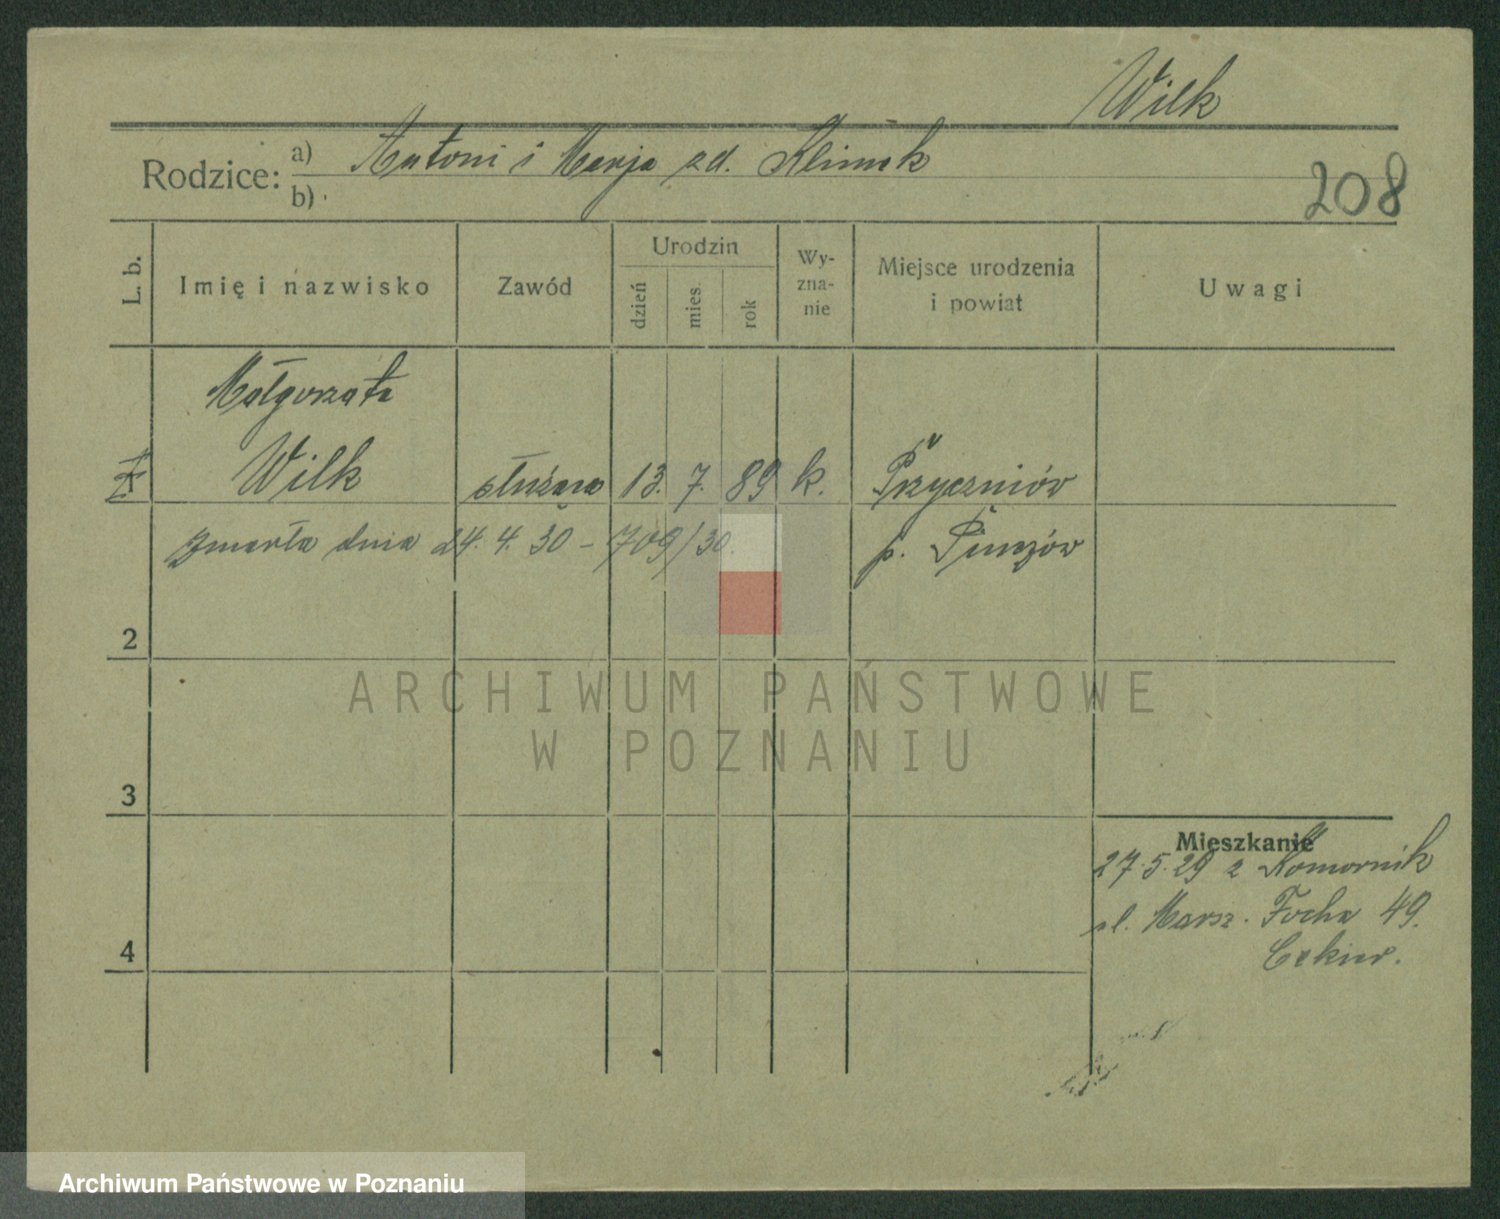 Wilk
Rodzice: a) Antoni i Marja zd. Klimek
b)
208
L. b. Imię i nazwisko Zawód Urodzin dzień mies. rok Wy-zna-nie Miejsce urodzenia i powiat Uwagi
Małgorzata
Wilk służąca 13. 7. 89 k.
zmarła dnia 24. 4. 30 - 709/30. p.
2
ARCHIWUM PAŃSTWOWE
W POZNANIU
3
Mieszkanie
27.5.29 z Komornik
ul. Marsz. Focha 49.
4
Archiwum Państwowe w Poznaniu